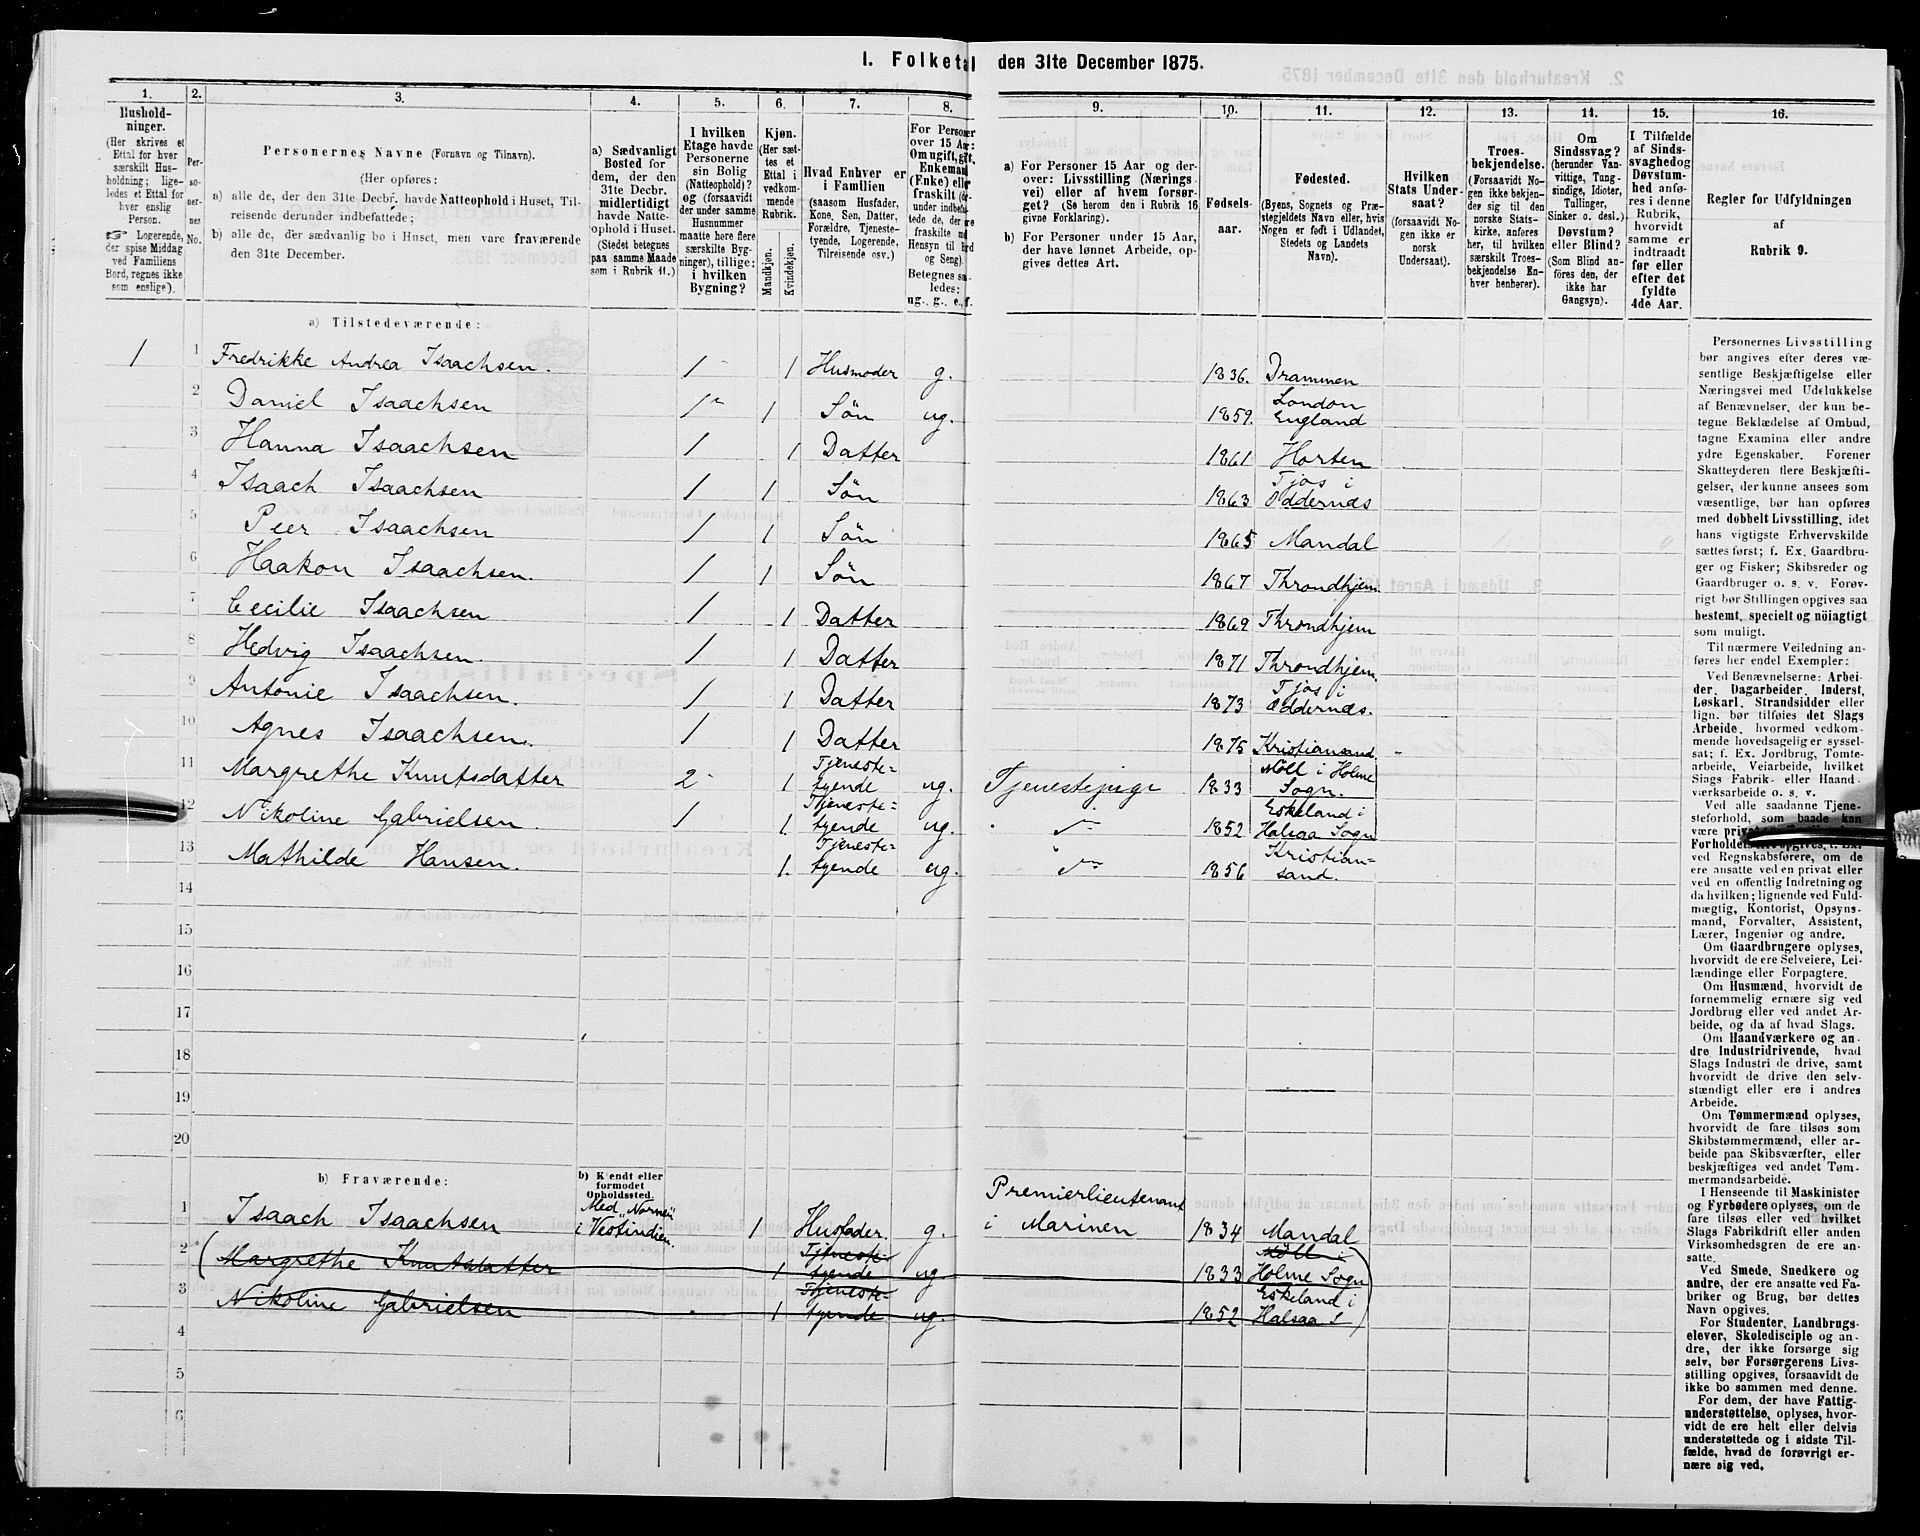 I. Folketal den 31te December 1875.
1. 2. 3. 4. 5. 6. 7. 8. 9. 10. 11. 12. 13. 14. 15. 16.
Hushold-
ninger.
(Her skrives et
Ettal for hver
særskilt Hus-
holdning; lige-
ledes et Ettal for
hver enslig
Person.
☞ Logerende,
der spise Middag
ved Familiens
Bord, regnes ikke
som enslige).
Per-
so-
ner-
nes
No.
Personernes Navne (Fornavn og Tilnavn).
(Her opføres:
a) alle de, der den 31te Decbr. havde Natteophold i Huset, Til-
reisende derunder indbefattede;
b) alle de, der sædvanlig bo i Huset, men vare fraværende
den 31te December.
a) Sædvanligt
Bosted for
dem, der den
31te Decbr.
midlertidigt
havde Natte-
ophold i Huset.
(Stedet betegnes
paa samme Maade
som i Rubrik 11.)
I hvilken
Etage havde
Personerne
sin Bolig
(Natteophold)?
og (forsaavidt
der under samme
Husnummer
maatte høre flere
særskilte Byg-
ninger), tillige:
i hvilken
Bygning?
Kjøn.
(Her sæt-
tes et
Ettal i
vedkom-
mende
Rubrik.
Mandkjøn.
Kvindekjøn.
Hvad Enhver er
i Familien
(saasom Husfader,
Kone, Søn, Datter,
Forældre, Tjeneste-
tyende, Logerende,
Tilreisende osv.)
For Personer
over 15 Aar:
Om ugift, gift,
Enkemand
(Enke) eller
fraskilt
Betegnes sa-
ledes:
ug., g., e., f.
a) For Personer 15 Aar og der-
over: Livsstilling (Nærings-
vei) eller af hvem forsør-
get? (Se herom den i Rubrik 16
givne Forklaring).
b) For Personer under 15 Aar,
der have lønnet Arbeide, op-
gives dettes Art.
Fødsels-
aar.
Fødested.
(Byens, Sognets og Præ-
stegjeldets Navn eller, hvis
Nogen er født i Udlandet,
Stedets og Landets
Navn).
Hvilken
Stats Under-
saat?
(forsaavidt No-
gen ikke er
norsk
Undersaat).
Troes-
bekjendelse.
(Forsaavidt No-
gen ikke bekjen-
der sig til den
norske Stats-
kirke, anføres
her, til hvilken
særskilt Troes-
bekjendelse En-
hver henhører).
Om
Sindssvag?
(herunder Van-
vittige, Tung-
sindige, Idioter,
Tullinger,
Sinker o. desl.)
Døvstum?
eller Blind?
(Som Blind an-
føres den, der
ikke har
Gangsyn).
I Tilfælde
af Sinds-
svaghed og
Døvstum-
hed anfø-
res i denne
Rubrik,
hvorvidt
samme er
indtraadt
før eller
efter det
fyldte
4de Aar.
Regler for Udfyldningen
af
Rubrik 9.
a) Tilstedeværende:
1 1 Fredrikke Andrea Isaachsen. 1 1 Husmoder g. 1836. Drammen
2 Daniel Isaachsen 1 1 Søn ug. 1859. London England
3 Hanna Isaachsen 1 1 Datter 1861 Horten
4 Isaach Isaachsen 1 1 Søn 1863 Tjos i Oddernæs
5 Peer Isaachsen 1 1 Søn 1865 Mandal
6 Haakon Isaachsen. 1 1 Søn 1867 Throndhjem.
7 Cecilie Isaachsen 1 1 Datter 1869 Throndhjem
8 Hedvig Isaachsen. 1 1 Datter 1871 Throndhjem.
9 Antonie Isaachsen. 1 1 Datter 1873 Tjos i Oddernæs.
10 Agnes Isaachsen. 1 1 Datter 1875 Kristiansand.
11 Margrethe Knutsdatter 2 1 Tjeneste-tyende ug. Tjenestepige 1833 Möll i Holme Sogn.
12 Nikoline Gabrielsen. 1 1. Tjeneste-tyende ug. 1852 Eskeland i Halsaa Sogn
13 Mathilde Hansen. 1. Tjeneste-tyende ug. 1856 Kristian-sand.
14
15
16
17
18
19
20
b) Fraværende:
b) Kjendt eller
formodet
Opholdssted.
1 Isaach Isaachsen Med "Nornen" i Vestindien. 1 Husfader. g. Premierlieutenant i Marinen 1834 Mandal
2 Margrethe Knutsdatter 1 Tjeneste-tyende ug. 1833 Möll i Holme Sogn
3 Nikoline Gabrielsen 1 Tjeneste-tyende ug. 1852 Eskeland i Halsaa S
4
5
6
Personernes Livsstilling
bør angives efter deres væ-
sentlige Beskjæftigelse eller
Næringsvei med Udelukkelse
af Benævnelser, der kun be-
tegne Beklædelse af Ombud,
tagne Examina eller andre
ydre Egenskaber. Forener
Skatteyderen flere Beskjæfti-
gelser, der kunne ansees som
væsentlige, bør han opføres
med dobbelt Livsstilling, idet
hans vigtigste Erhvervskilde
sættes først; f. Ex. Gaardbru-
ger og Fisker; Skibsreder og
Gaardbruger o. s. v. Forøv-
rigt bør Stillingen opgives saa
bestemt, specielt og nöiagtigt
som muligt.
Til nærmere Veiledning an-
føres her endel Exempler:
Ved Benævnelserne: Arbei-
der, Dagarbeider, Inderst,
Løskarl, Strandsidder eller
lign. bør tilføies det Slags
Arbeide, hvormed vedkom-
mende hovedsagelig er syssel-
sat; f. Ex. Jordbrug, Tomte-
arbeide, Veiarbeide, hvilket
Slags Fabrik- eller Haand-
værksarbeide o. s. v.
Ved alle saadanne Tjene-
steforhold, som baade kan
være
Forholdets
ved Regnskabsførere, om de
ere ansatte ved en privat eller
ved en offentlig Indretning og
da hvilken; lignende ved Fuld-
mægtig, Kontorist, Opsyns-
mand, Forvalter, Assistent,
Lærer, Ingeniør og andre.
Om Gaardbrugere oplyses,
hvorvidt de ere Selveiere, Lei-
lændinge eller Forpagtere.
Om Husmænd, hvorvidt de
fornemmelig ernære sig ved
Jordbrug eller ved andet Ar-
beide, og da af hvad Slags.
Om Haandværkere og an-
dre Industridrivende, hvad
Slags Industri de drive, samt
hvorvidt de drive den selv-
stændigt eller ere i andres
Arbeide.
Om Tømmermænd oplyses,
hvorvidt de fare tilsøs som
Skibstømmermænd, eller ar-
beide paa Skibsværfter, eller
beskjæftiges ved andet Tøm-
mermandsarbeide.
I Henseende til Maskinister
og Fyrbødere oplyses, om de
fare tilsøs eller ved hvilket
Slags Fabrikdrift eller anden
Virksomhedsgren de ere an-
satte.
Ved Smede, Snedkere og
andre, der ere ansatte ved Fa-
briker og Brug, bør dettes
Navn opgives.
For Studenter, Landbrugs-
elever, Skoledisciple og an-
dre, der ikke forsørge sig
selv, bør Forsørgerens Livs-
stilling opgives, forsaavidt de
ikke bo sammen med denne.
For dem, der have Fattig-
understøttelse, oplyses, hvor-
vidt de ere helt eller delvis
understøttede og i sidste Til-
fælde, hvad de forøvrigt er-
nære sig ved.